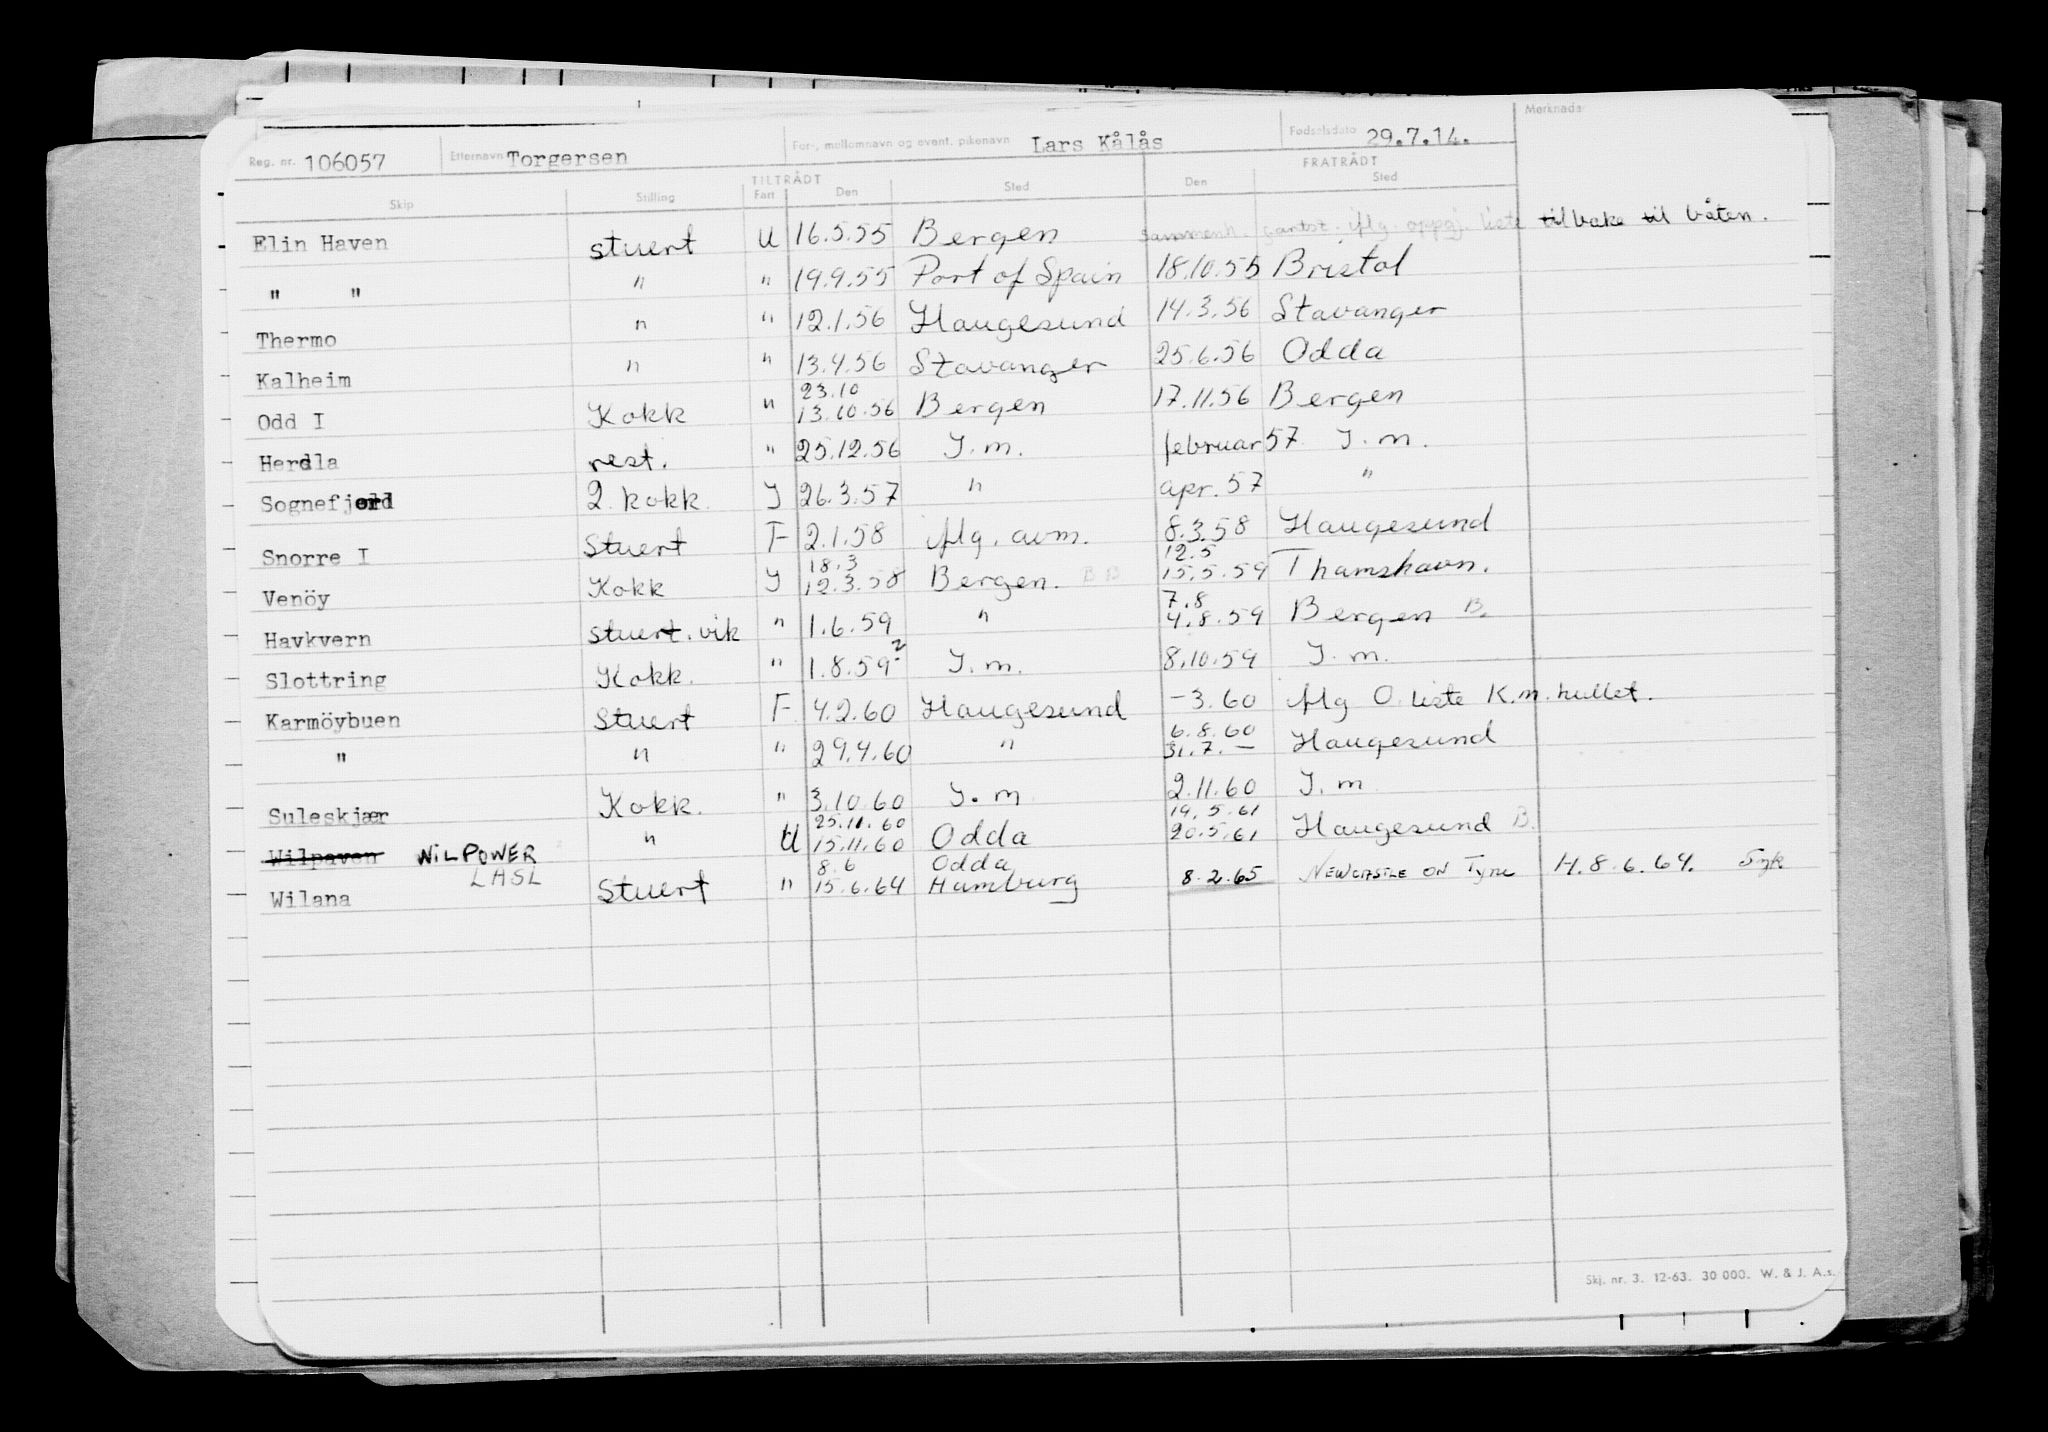 Reg. nr. 106057 Etternavn Torgersen For-, mellomnavn og event. pikenavn Lars Kålås Fødselsdato 29.7.14. Merknader
TILTRÅDT FRATRÅDT
Skip Stilling Fart Den Sted Den Sted
Elin Haven stuert U 16.5.55 Bergen sammenh. iflg. oppgj. liste tilbake til båten.
" " " " 19.9.55 Port of Spain 18.10.55 Bristol
Thermo " " 12.1.56 Haugesund 14.3.56 Stavanger
Kalheim " " 13.4.56 Stavanger 25.6.56 Odda
23.10
Odd I Kokk " 13.10.56 Bergen 17.11.56 Bergen
Herdla rest. " 25.12.56 I.m. februar 57 I.m.
Sognefjord 2. kokk. I 26.3.57 " apr. 57 "
Snorre I Stuert F 2.1.58 iflg. avm. 8.3.58 Haugesund
18.3 12.5
Venöy Kokk I 12.3.58 Bergen. B B 15.5.59 Thamshavn.
7.8
Havkvern stuert. vik " 1.6.59 " 4.8.59 Bergen B.
Slottring Kokk. " 1.8.59 ? I.m. 8.10.59 I.m.
Karmöybuen Stuert F 4.2.60 Haugesund -3.60 iflg O. liste K.m. hullet.
6.8.60
" " " 29.4.60 " 31.7.- Haugesund
Suleskjær Kokk. " 3.10.60 I.m 2.11.60 I.m
25.11.60 19.5.61
Wilpaven WILPOWER " U 15.11.60 Odda 20.5.61 Haugesund B.
LHSL 8.6 Odda
Wilana Stuert " 15.6.64 Hamburg 8.2.65 NEWCASTLE ON TYNE H.8.6.64. Syk
Skj. nr. 3. 12-63. 30 000. W. & J. A.s.